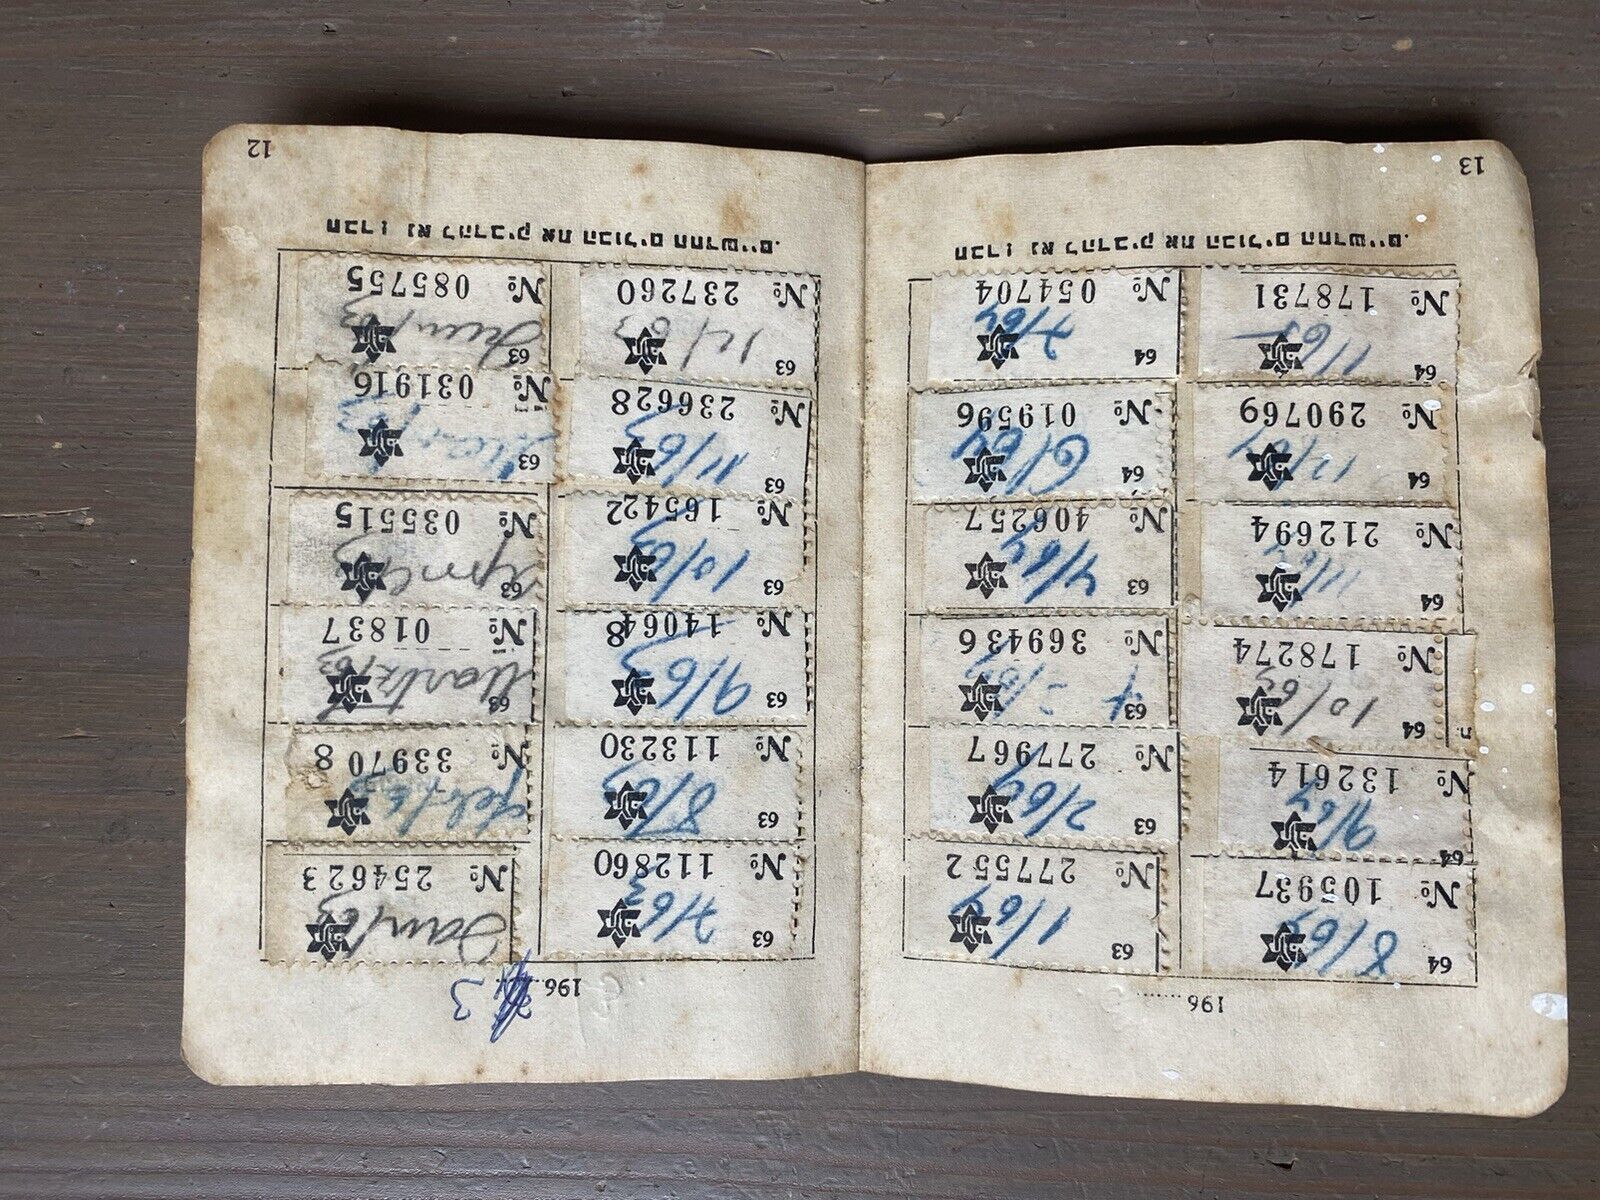 196 3
Jan/63
№ 254623
№ 339708
63 Martz/63
№ 01837
63 April
№ 035515
63
№ 031916
63 Juni/63
№ 085755
63 7/63
№ 112860
63 8/63
№ 113230
63 9/63
№ 140648
63 10/63
№ 165422
63 11/63
№ 236628
63 12/63
№ 237260
חבר! נא להדביק את הבולים החדשיים.
12
196
63 1/64
№ 277552
63 2/64
№ 277967
63
№ 369436
63 4/64
№ 406257
64 6/64
№ 019596
64 7/64
№ 054704
64 8/64
№ 105937
64 9/64
№ 132614
64 10/64
№ 178274
64 11/64
№ 212694
64 12/64
№ 290769
64 1/65
№ 178731
חבר! נא להדביק את הבולים החדשיים.
13